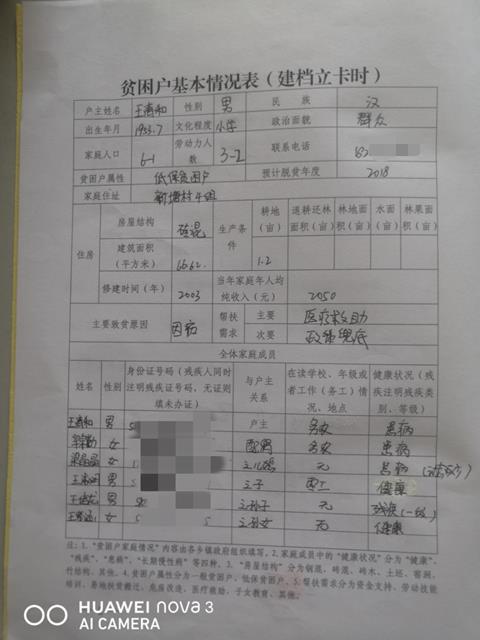 贫困户基本情况表（建档立卡时）
户主姓名 性别 男 民族 汉
出生年月 1953.7 文化程度 小学 政治面貌 群众
家庭人口 劳动力人数 联系电话
贫困户属性 低保贫困户 预计脱贫年度 2018
家庭住址
住房 房屋结构 砖混 生产条件 耕地（亩） 退耕还林面积（亩） 林地面积（亩） 水面（亩） 林果面积（亩）
建筑面积（平方米） 66.62 1.2
修建时间（年） 2003 当年家庭年人均纯收入（元） 2050
主要致贫原因 因病 帮扶需求 主要 医疗救助
次要 政策兜底
全体家庭成员
姓名 性别 身份证号码（残疾人同时注明残疾证号码，无证则填未办证） 与户主关系 在读学校、年级或者工作（务工）情况、地点 健康状况（残疾注明残疾类别、等级）
男 户主 务农 患病
女 配偶 务农 患病
女 之儿媳 无 患病
男 之子 健康
男 之孙子 无 残疾（一级）
女 之孙女 无 健康
注：1、“贫困户家庭情况”内容由各乡镇政府组织填写。2、家庭成员中的“健康状况”分为“健康”、
“残疾”、“患病”、“长期慢性病”等四种。3、“房屋结构”分为钢混、砖混、砖木、土坯、窑洞、
竹结构、其他。4、贫困户属性分为一般贫困户、低保贫困户。5、帮扶需求分为资金支持、劳动技能
培训、易地扶贫搬迁、危房改造、医疗救助、子女教育、其他。
HUAWEI nova 3
AI CAMERA